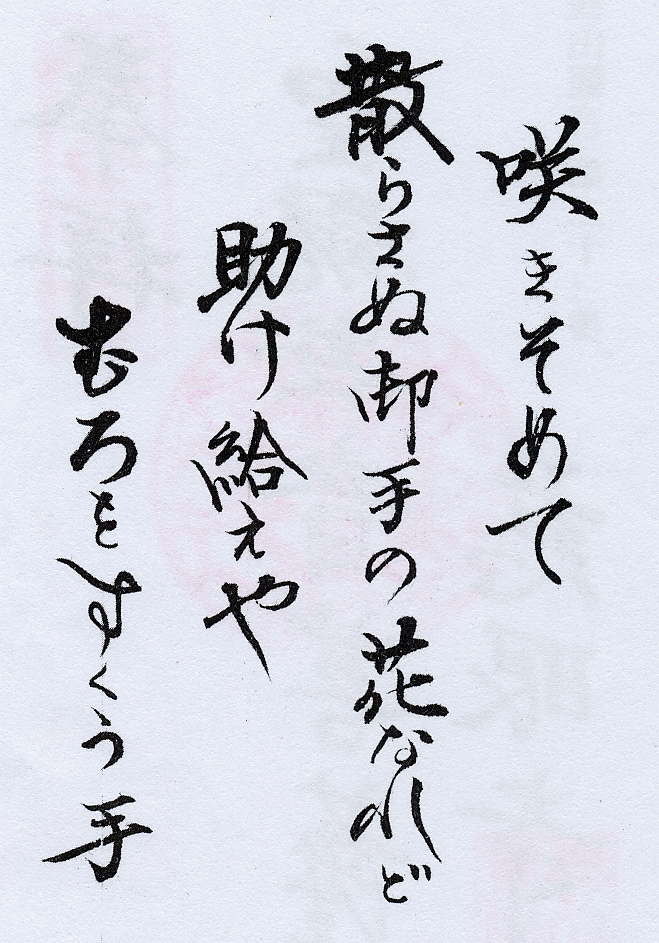 咲きそめて
散らさぬ御手の花なれど
助け給えや
むろをすくう手